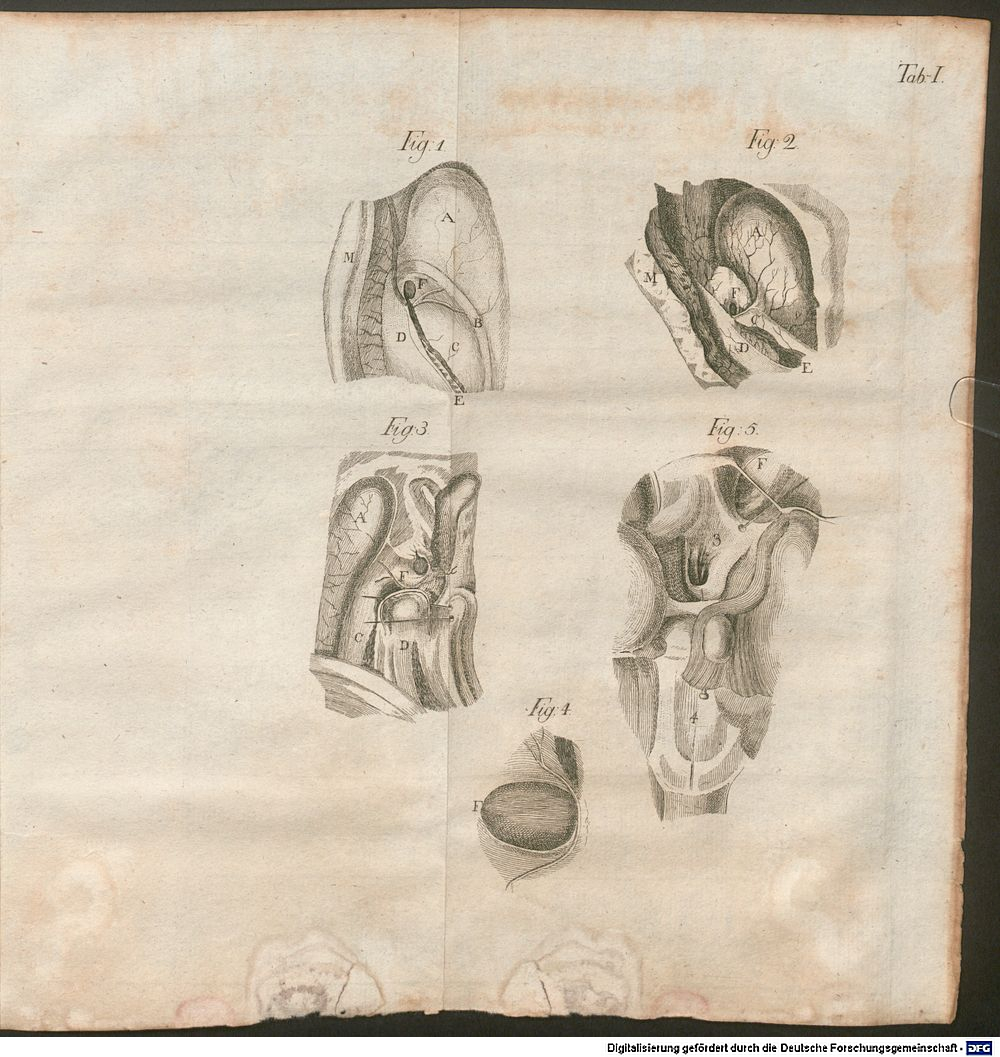 Tab. I.
Fig. 1
Fig: 2.
A
M
F
B
D
C
E
A
M
F
C
D
E
Fig: 3.
Fig: 5.
A
F
C
D
F
3
3
4
Fig: 4.
F
Digitalisierung gefördert durch die Deutsche Forschungsgemeinschaft - DFG